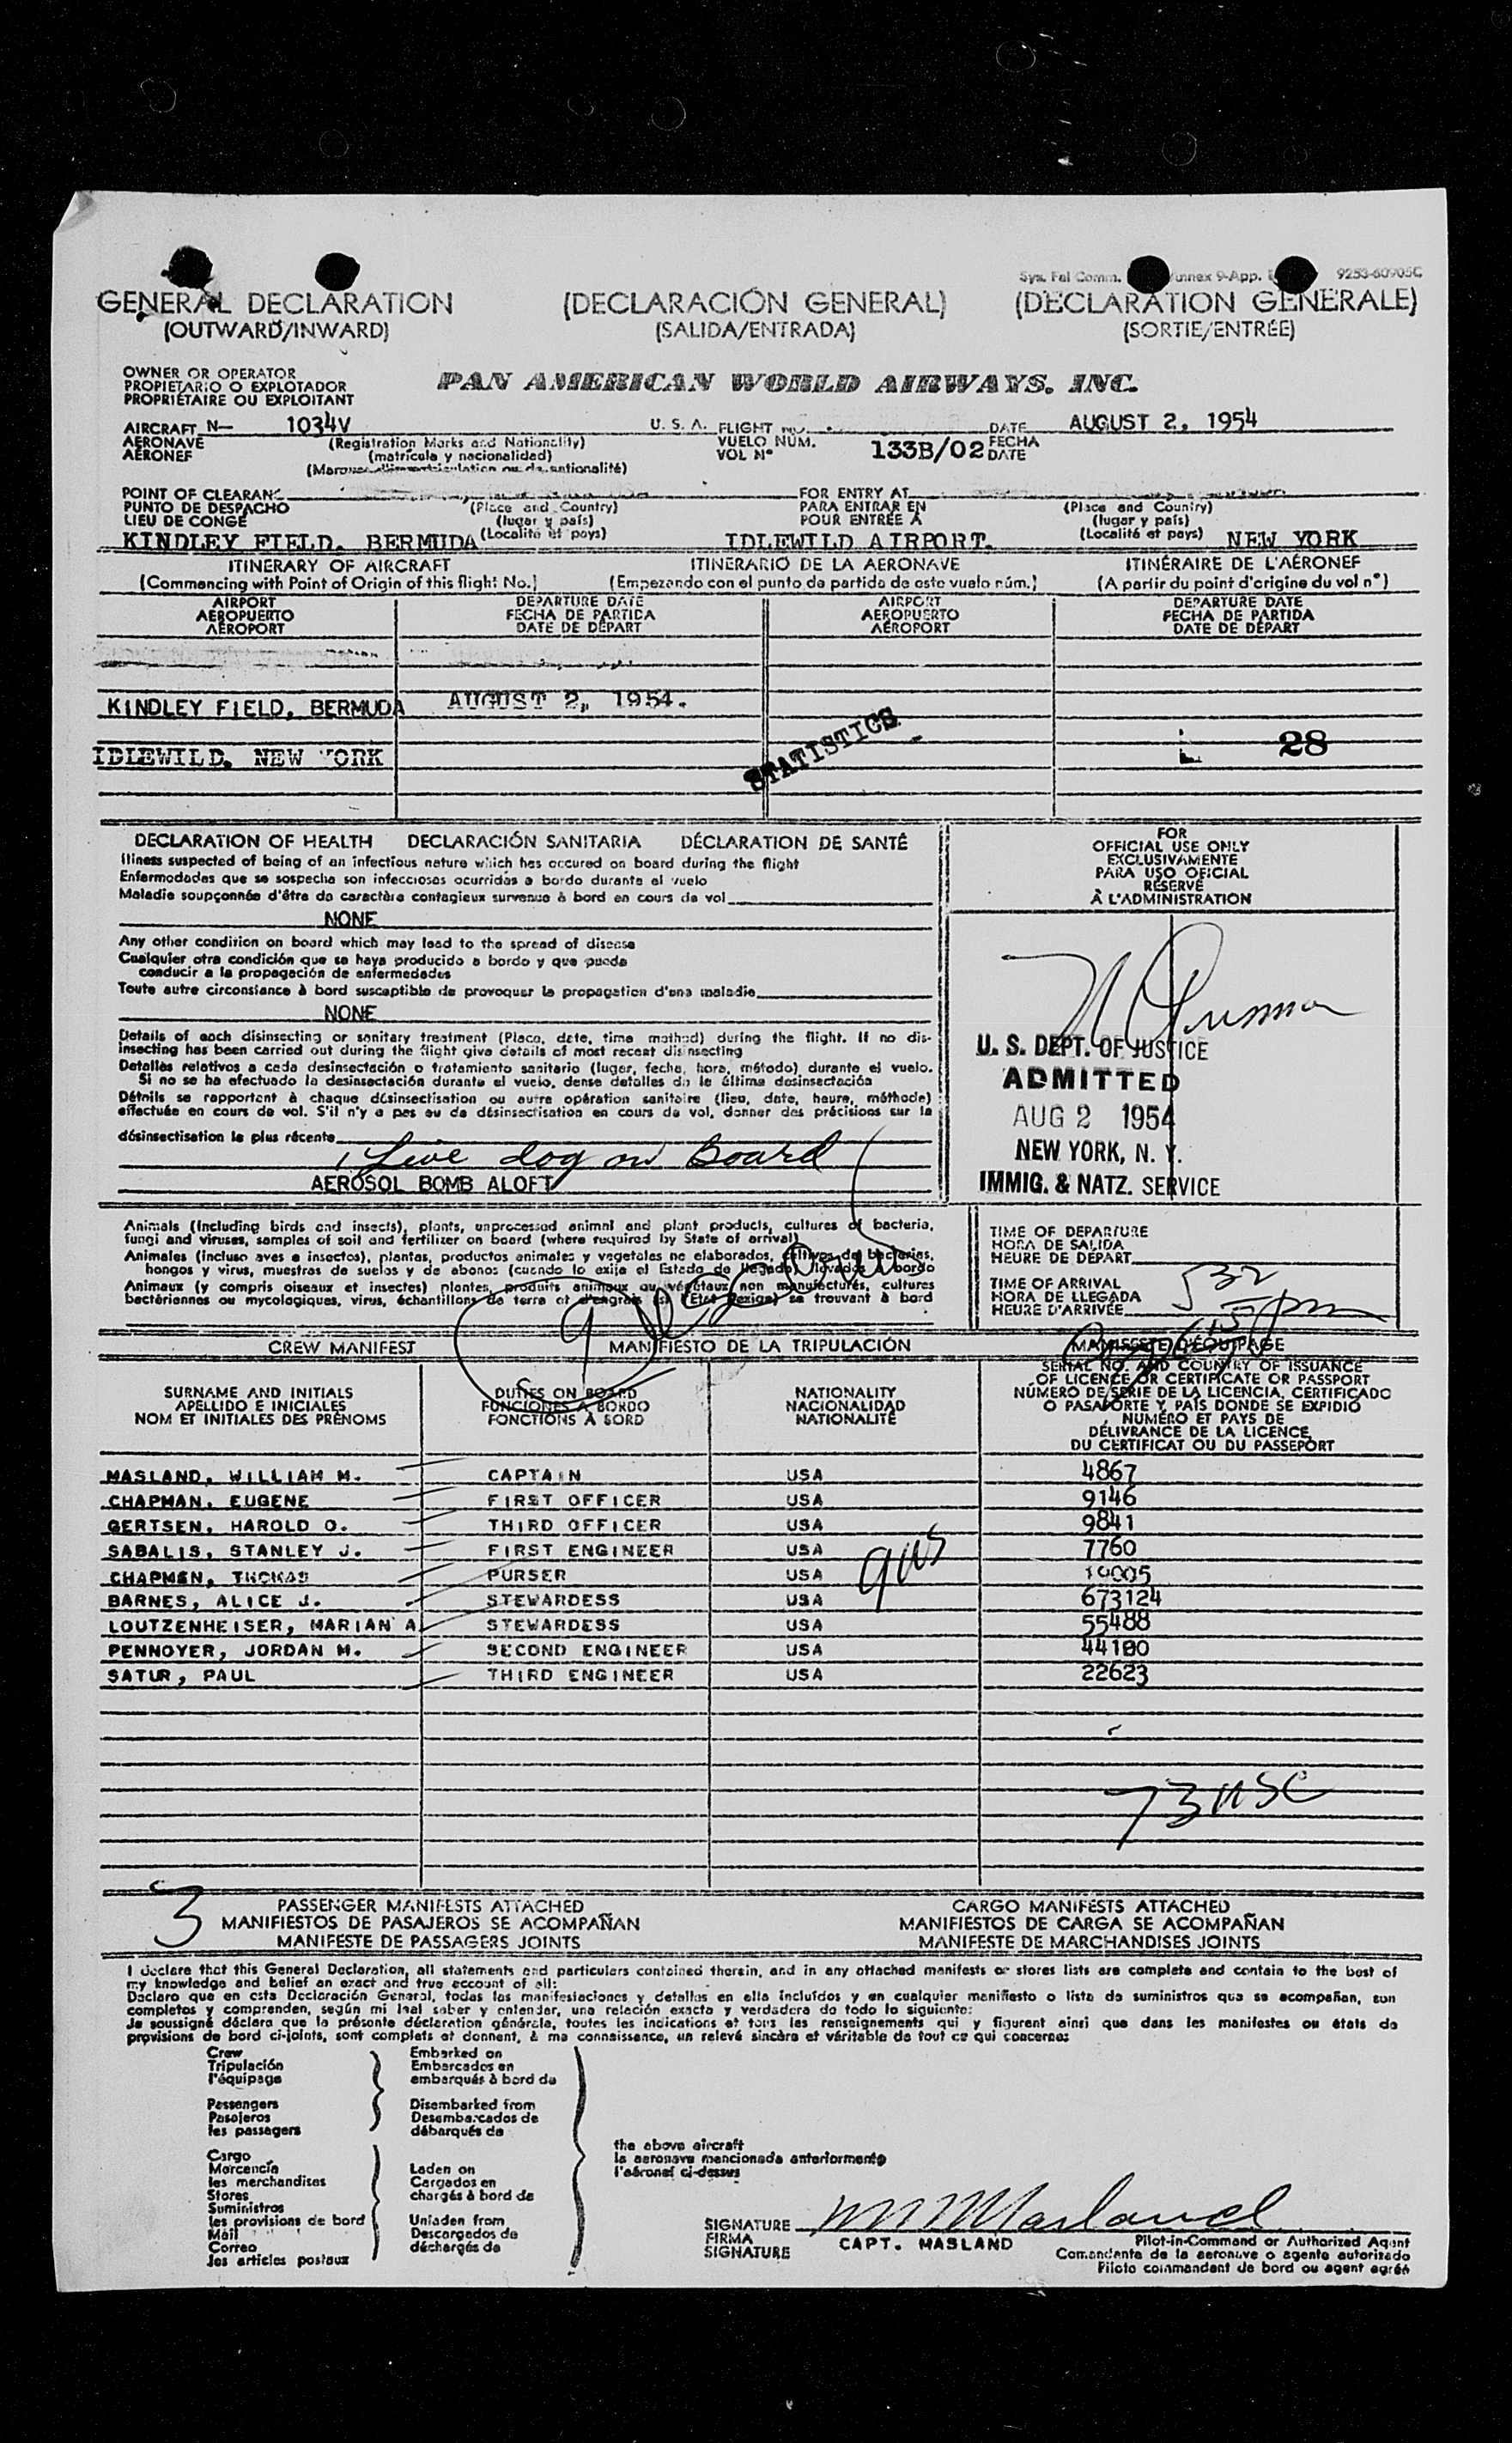 Sys. Fal Comm. Annex 9-App. 9253-60905C
GENERAL DECLARATION (DECLARACIÓN GENERAL) (DÉCLARATION GÉNÉRALE)
(OUTWARD/INWARD) (SALIDA/ENTRADA) (SORTIE/ENTRÉE)
OWNER OR OPERATOR
PROPIETARIO O EXPLOTADOR
PROPRIÉTAIRE OU EXPLOITANT
PAN AMERICAN WORLD AIRWAYS, INC.
AIRCRAFT N— 1034V U. S. A. FLIGHT NO. DATE AUGUST 2, 1954
AERONAVE (Registration Marks and Nationality) VUELO NÚM. 133B/02 FECHA
AÉRONEF (matrícula y nacionalidad) VOL N° DATE
(Marques d'immatriculation ou de nationalité)
POINT OF CLEARANCE FOR ENTRY AT
PUNTO DE DESPACHO (Place and Country) PARA ENTRAR EN (Place and Country)
LIEU DE CONGÉ (lugar y país) POUR ENTRÉE À (lugar y país)
KINDLEY FIELD, BERMUDA (Localité et pays) IDLEWILD AIRPORT, (Localité et pays) NEW YORK
ITINERARY OF AIRCRAFT ITINERARIO DE LA AERONAVE ITINÉRAIRE DE L'AÉRONEF
(Commencing with Point of Origin of this flight No.) (Empezando con el punto de partida de este vuelo núm.) (A partir du point d'origine du vol n°)
AIRPORT DEPARTURE DATE AIRPORT DEPARTURE DATE
AEROPUERTO FECHA DE PARTIDA AEROPUERTO FECHA DE PARTIDA
AÉROPORT DATE DE DÉPART AÉROPORT DATE DE DÉPART
KINDLEY FIELD, BERMUDA AUGUST 2, 1954.
STATISTICS
28
IDLEWILD, NEW YORK
DECLARATION OF HEALTH DECLARACIÓN SANITARIA DÉCLARATION DE SANTÉ
Illness suspected of being of an infectious nature which has occured on board during the flight
Enfermedades que se sospecha son infecciosas ocurridas a bordo durante el vuelo
Maladie soupçonnée d'être de caractère contagieux survenue à bord en cours de vol
NONE
Any other condition on board which may lead to the spread of disease
Cualquier otra condición que se haya producido a bordo y que pueda
conducir a la propagación de enfermedades
Toute autre circonstance à bord susceptible de provoquer la propagation d'une maladie
NONE
Details of each disinsecting or sanitary treatment (Place, date, time method) during the flight. If no dis-
insecting has been carried out during the flight give details of most recent disinsecting
Detalles relativos a cada desinsectación o tratamiento sanitario (lugar, fecha, hora, método) durante el vuelo.
Si no se ha efectuado la desinsectación durante el vuelo, dense detalles de la última desinsectación
Détails se rapportant à chaque désinsectisation ou autre opération sanitaire (lieu, date, heure, méthode)
effectuée en cours de vol. S'il n'y a pas eu de désinsectisation en cours de vol, donner des précisions sur la
désinsectisation la plus récente
1 Live dog on Board
AEROSOL BOMB ALOFT
FOR
OFFICIAL USE ONLY
EXCLUSIVAMENTE
PARA USO OFICIAL
RÉSERVÉ
À L'ADMINISTRATION
U. S. DEPT. OF JUSTICE
ADMITTED
AUG 2 1954
NEW YORK, N. Y.
IMMIG. & NATZ. SERVICE
Animals (including birds and insects), plants, unprocessed animal and plant products, cultures of bacteria,
fungi and viruses, samples of soil and fertilizer on board (where required by State of arrival)
Animales (incluso aves e insectos), plantas, productos animales y vegetales no elaborados, cultivos de bacterias,
hongos y virus, muestras de suelos y de abonos (cuando lo exija el Estado de llegada) llevados a bordo
Animaux (y compris oiseaux et insectes) plantes, produits animaux ou végétaux non manufacturés, cultures
bactériennes ou mycologiques, virus, échantillons de terre et d'engrais (si l'État l'exige) se trouvant à bord
TIME OF DEPARTURE
HORA DE SALIDA
HEURE DE DÉPART
TIME OF ARRIVAL
HORA DE LLEGADA
HEURE D'ARRIVÉE
532 pm
CREW MANIFEST MANIFIESTO DE LA TRIPULACIÓN MANIFESTE D'ÉQUIPAGE
SURNAME AND INITIALS
APELLIDO E INICIALES
NOM ET INITIALES DES PRÉNOMS
DUTIES ON BOARD
FUNCIONES A BORDO
FONCTIONS À BORD
NATIONALITY
NACIONALIDAD
NATIONALITÉ
SERIAL NO. AND COUNTRY OF ISSUANCE
OF LICENCE OR CERTIFICATE OR PASSPORT
NÚMERO DE SERIE DE LA LICENCIA, CERTIFICADO
O PASAPORTE Y PAÍS DONDE SE EXPIDIÓ
NUMÉRO ET PAYS DE
DÉLIVRANCE DE LA LICENCE,
DU CERTIFICAT OU DU PASSEPORT
MASLAND, WILLIAM M. CAPTAIN USA 4867
CHAPMAN, EUGENE FIRST OFFICER USA 9146
GERTSEN, HAROLD O. THIRD OFFICER USA 9841
SABALIS, STANLEY J. FIRST ENGINEER USA 7760
CHAPMEN, THOMAS PURSER USA 19005
BARNES, ALICE J. STEWARDESS USA 673124
LOUTZENHEISER, MARIAN A. STEWARDESS USA 55488
PENNOYER, JORDAN M. SECOND ENGINEER USA 44180
SATUR, PAUL THIRD ENGINEER USA 22623
73 USC
3
PASSENGER MANIFESTS ATTACHED CARGO MANIFESTS ATTACHED
MANIFIESTOS DE PASAJEROS SE ACOMPAÑAN MANIFIESTOS DE CARGA SE ACOMPAÑAN
MANIFESTE DE PASSAGERS JOINTS MANIFESTE DE MARCHANDISES JOINTS
I declare that this General Declaration, all statements and particulars contained therein, and in any attached manifests or stores lists are complete and contain to the best of
my knowledge and belief an exact and true account of all:
Declaro que en esta Declaración General, todas las manifestaciones y detalles en ella incluídos y en cualquier manifiesto o lista de suministros que se acompañan, son
completos y comprenden, según mi leal saber y entender, una relación exacta y verdadera de todo lo siguiente:
Je soussigné déclare que la présente déclaration générale, toutes les indications et tous les renseignements qui y figurent ainsi que dans les manifestes ou états de
provisions de bord ci-joints, sont complets et donnent, à ma connaissance, un relevé sincère et véritable de tout ce qui concerne:
Crew Embarked on
Tripulación Embarcados en
l'équipage embarqués à bord de
Passengers Disembarked from
Pasajeros Desembarcados de
les passagers débarqués de
the above aircraft
la aeronave mencionada anteriormente
l'aéronef ci-dessus
Cargo
Mercancía Laden on
les merchandises Cargados en
Stores chargés à bord de
Suministros
les provisions de bord Unladen from
Mail Descargados de
Correo déchargés de
les articles postaux
SIGNATURE W M Masland
FIRMA CAPT. MASLAND Pilot-in-Command or Authorized Agent
SIGNATURE Comandante de la aeronave o agente autorizado
Pilote commandant de bord ou agent agréé